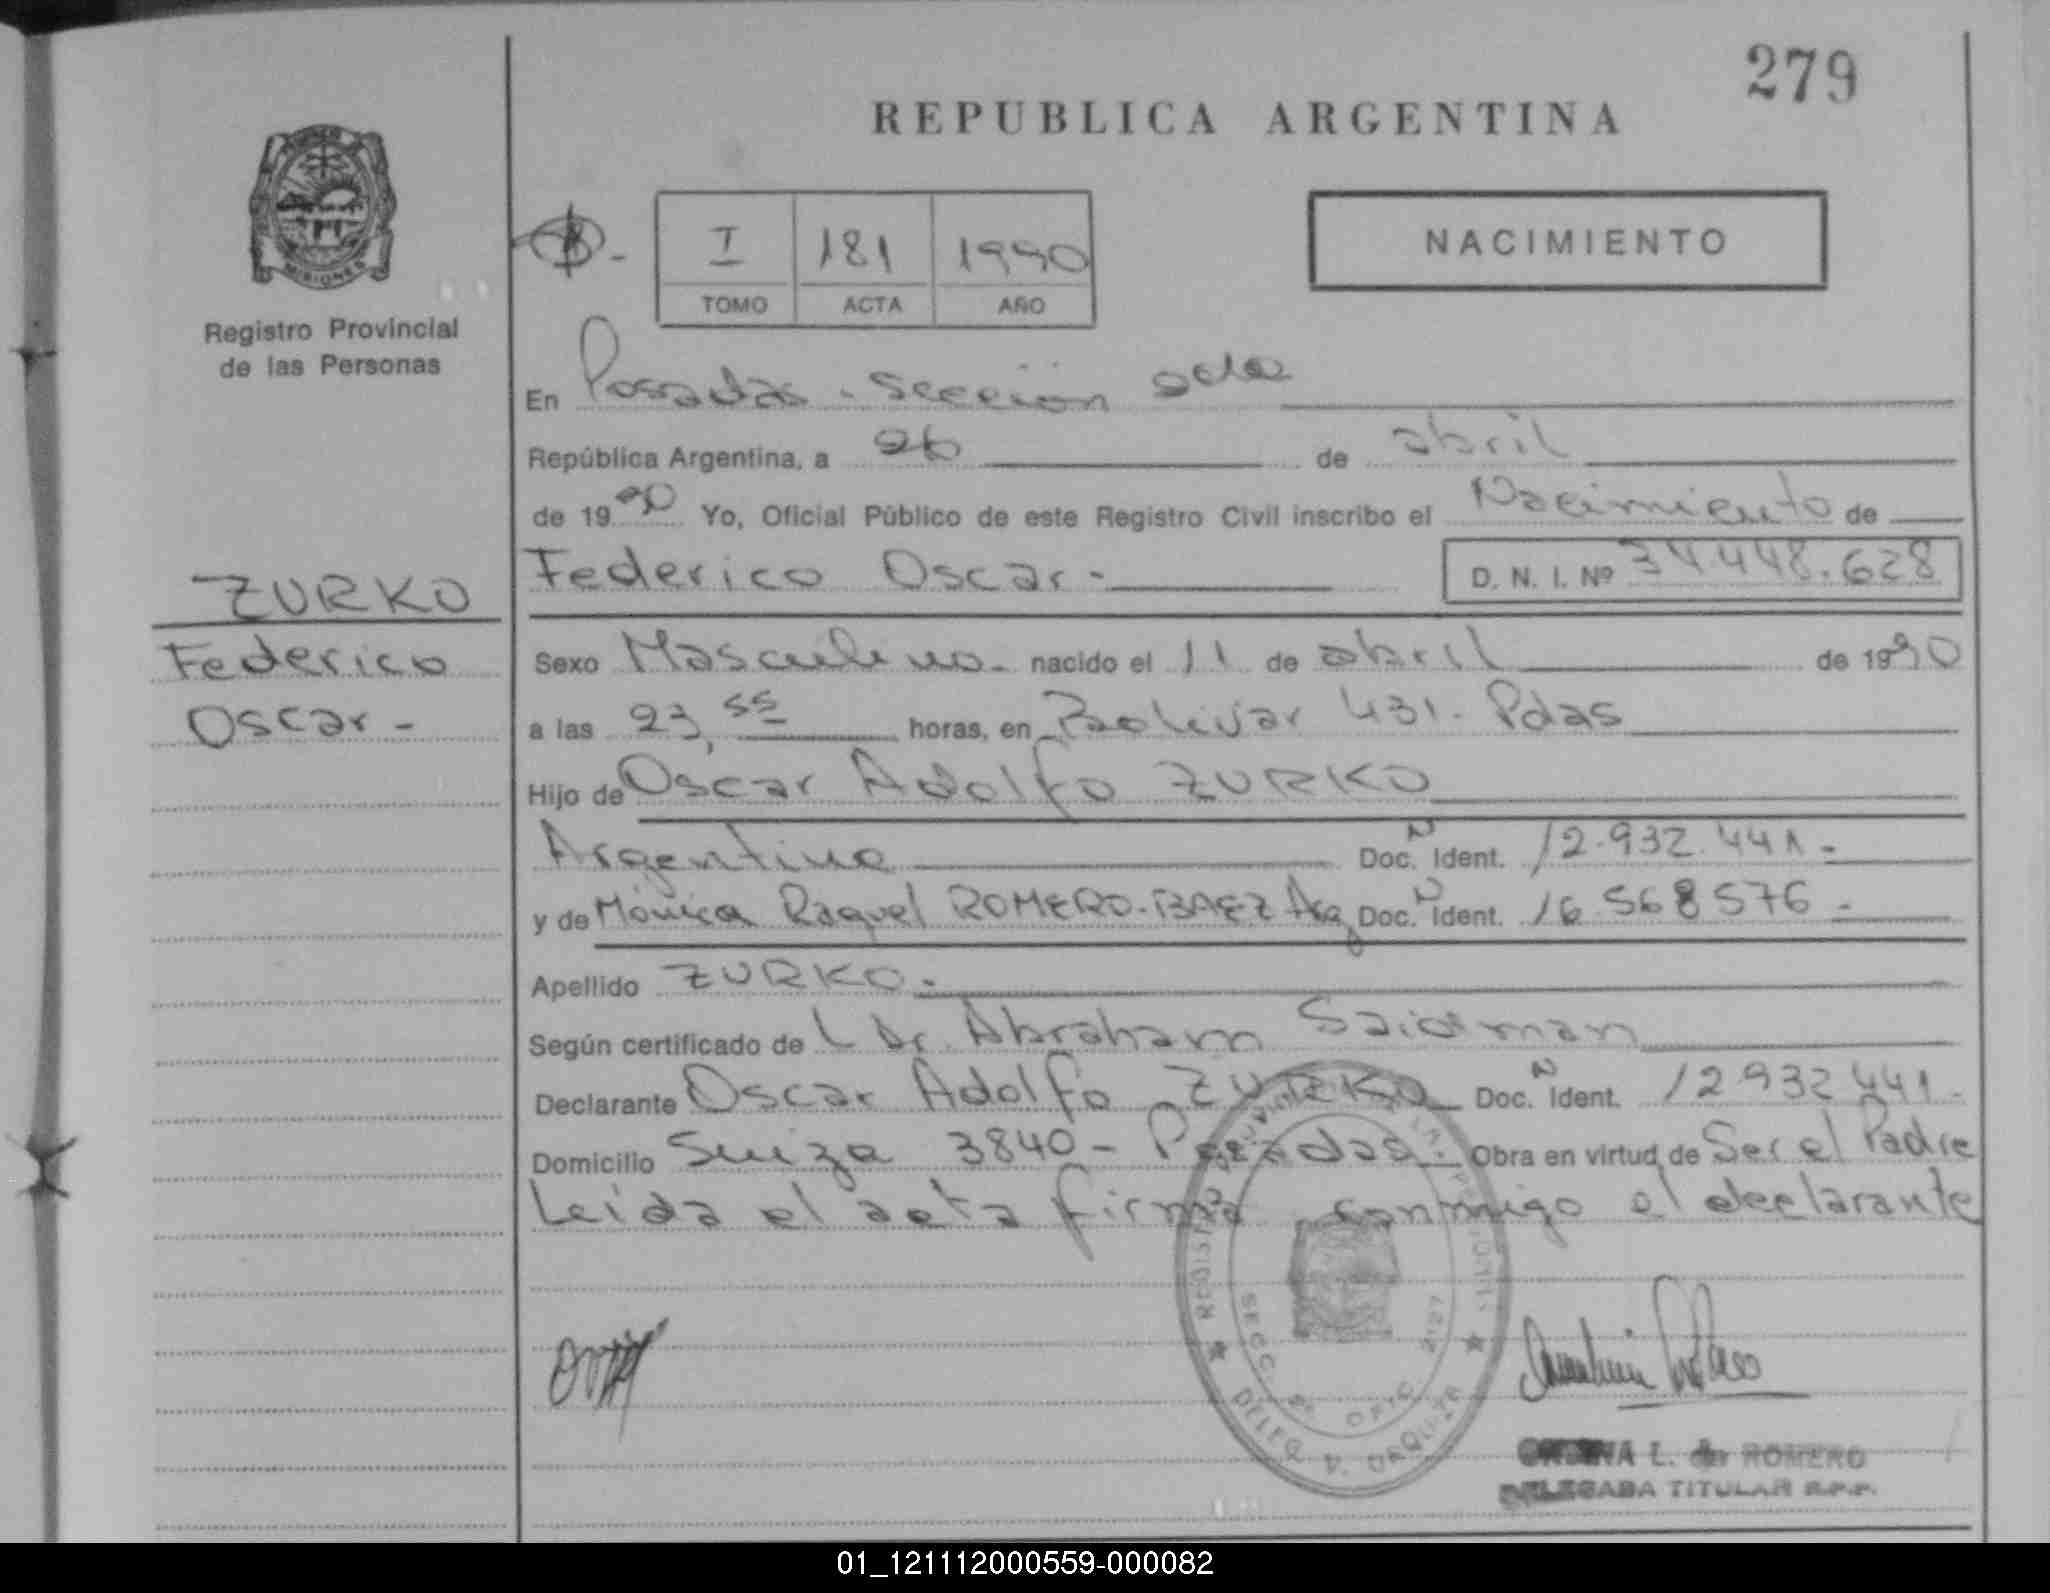 279
REPUBLICA ARGENTINA
MISIONES
Registro Provincial
de las Personas
I 181 1990
TOMO ACTA AÑO
NACIMIENTO
En Posadas - sección 2da
República Argentina, a 26 de abril
de 1990 Yo, Oficial Público de este Registro Civil inscribo el Nacimiento de
ZURKO
Federico
Oscar -
Federico Oscar - D. N. I. Nº 34.448.628
Sexo Masculino - nacido el 11 de abril de 1990
a las 23,55 horas, en Bolivar 431 - Pdas
Hijo de Oscar Adolfo ZURKO
Argentino Doc. N Ident. 12.932.441 -
y de Mónica Raquel ROMERO-BAEZ Arg Doc. N Ident. 16.568576 -
Apellido ZURKO -
Según certificado de L Dr. Abraham Saidman
Declarante Oscar Adolfo ZURKO Doc. N Ident. 12932441 -
Domicilio Suiza 3840 - Posadas - Obra en virtud de Ser el Padre
Leída el acta firma conmigo el declarante
SECC. OFIC. 2127
DELEG. V. URQUIZA
L. de ROMERO
DELEGADA TITULAR R.P.P.
01_121112000559-000082